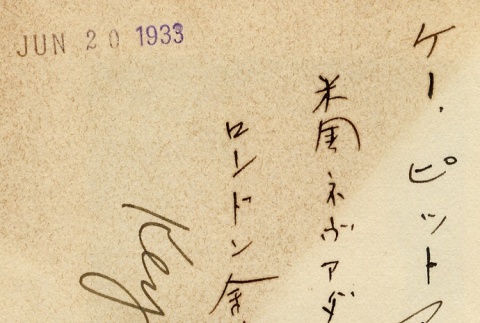 JUN 20 1933
ケー.ピット
米国ネヴアダ
ロンドン会
Key